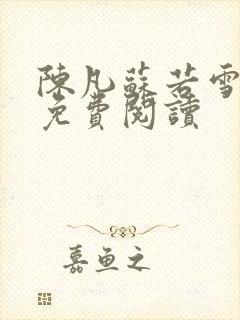 陳凡蘇若雪
免費閱讀
嘉魚之